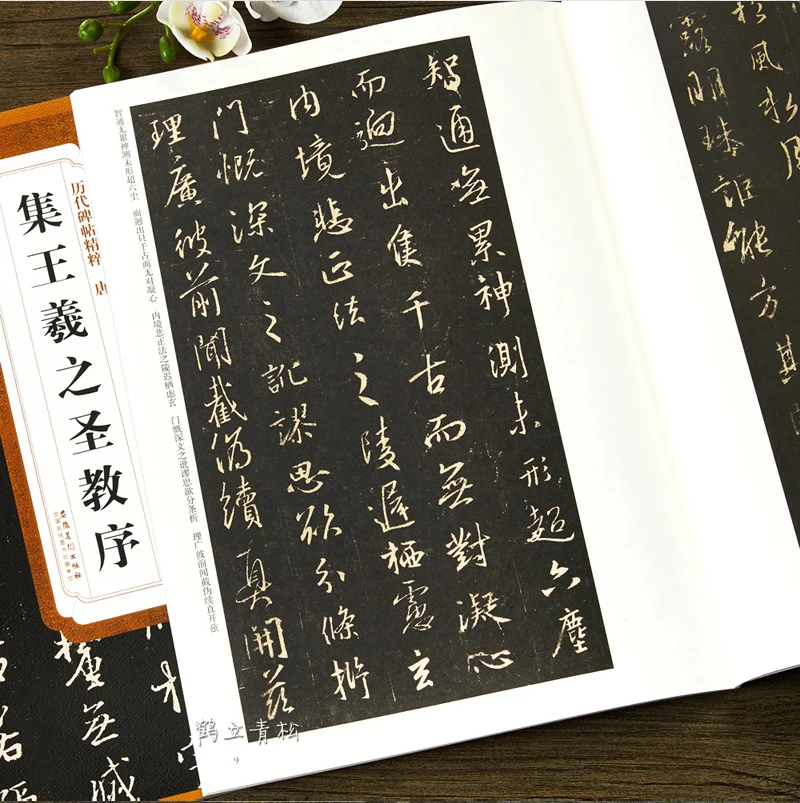 松風水月
露明珠詎能方其
智通無累神測未形超六塵
而迥出隻千古而無對凝心
内境悲正法之陵遲栖慮玄
門慨深文之訛謬思欲分條析
理廣彼前聞截偽續真開茲
智通无累神测未形超六尘 而迥出只千古而无对凝心 内境悲正法之陵迟栖虑玄 门慨深文之讹谬思欲分条析 理广彼前闻截伪续真开兹
9
历代碑帖精粹 唐
集王羲之圣教序
安徽美术出版社
鹤立青松